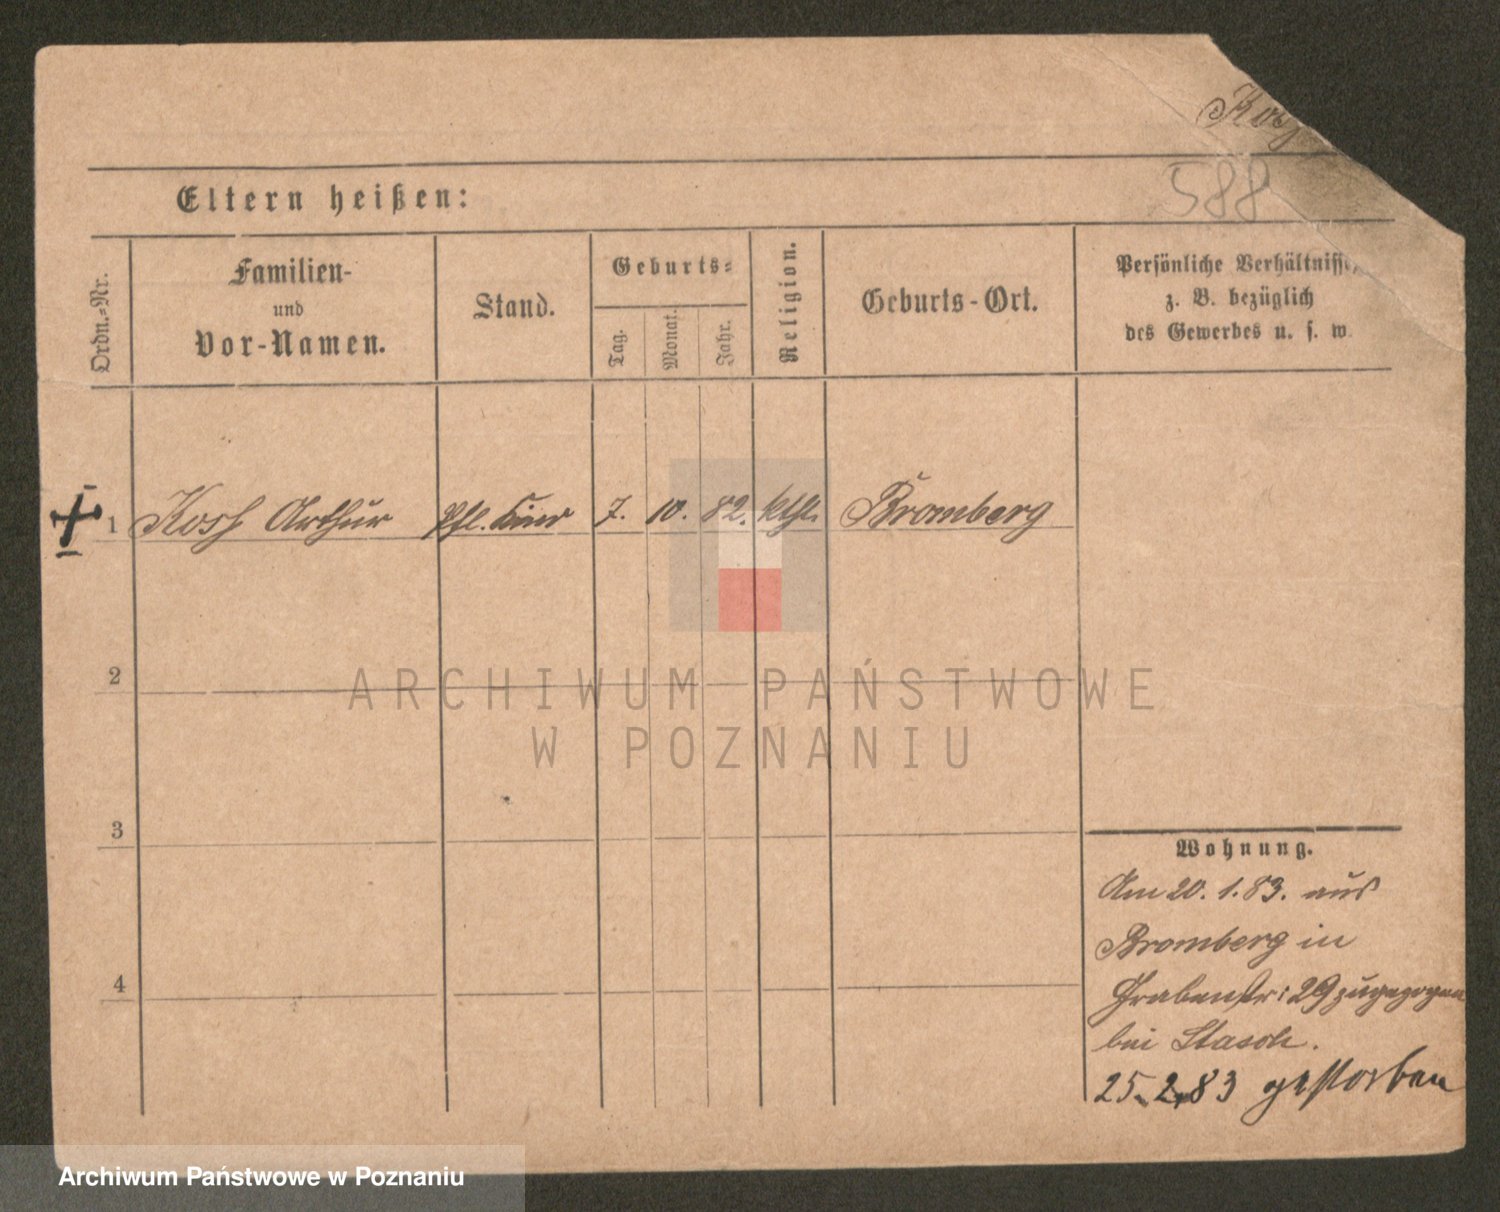 588
Eltern heißen:
Ordn.-Nr.
Familien-
und
Vor-Namen.
Stand.
Geburts-
Tag.
Monat.
Jahr.
Religion.
Geburts-Ort.
Persönliche Verhältnisse,
z. B. bezüglich
des Gewerbes u. s. w.
1 Arthur Pfl. Kind 7. 10. 82. kthl. Bromberg
2
ARCHIWUM PAŃSTWOWE
W POZNANIU
3
4
Wohnung.
Am 20. 1. 83. aus
Bromberg in
Grabenstr: 29 zugezogen
bei
25. 2. 83 gestorben
Archiwum Państwowe w Poznaniu